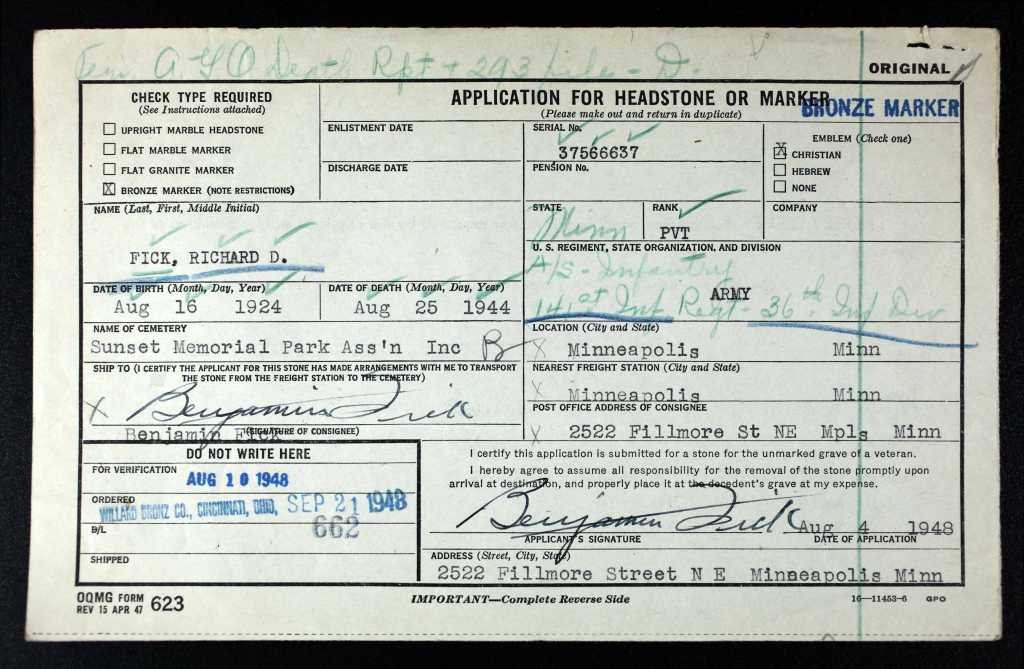 A G O Death Rpt + 293 file - D.
ORIGINAL
CHECK TYPE REQUIRED
(See Instructions attached)
UPRIGHT MARBLE HEADSTONE
FLAT MARBLE MARKER
FLAT GRANITE MARKER
X BRONZE MARKER (NOTE RESTRICTIONS)
APPLICATION FOR HEADSTONE OR MARKER
(Please make out and return in duplicate)
BRONZE MARKER
ENLISTMENT DATE
DISCHARGE DATE
SERIAL No.
37566637
PENSION No.
EMBLEM (Check one)
X CHRISTIAN
HEBREW
NONE
NAME (Last, First, Middle Initial)
FICK, RICHARD D.
STATE
Minn
RANK
PVT
COMPANY
U. S. REGIMENT, STATE ORGANIZATION, AND DIVISION
A/S - Infantry
ARMY
141st Inf Regt - 36th Inf Div
DATE OF BIRTH (Month, Day, Year)
Aug 16 1924
DATE OF DEATH (Month, Day, Year)
Aug 25 1944
NAME OF CEMETERY
Sunset Memorial Park Ass'n Inc
LOCATION (City and State)
X Minneapolis Minn
SHIP TO (I CERTIFY THE APPLICANT FOR THIS STONE HAS MADE ARRANGEMENTS WITH ME TO TRANSPORT
THE STONE FROM THE FREIGHT STATION TO THE CEMETERY)
X Benjamin Fick
Benjamin Fick
(SIGNATURE OF CONSIGNEE)
NEAREST FREIGHT STATION (City and State)
X Minneapolis Minn
POST OFFICE ADDRESS OF CONSIGNEE
X 2522 Fillmore St NE Mpls Minn
DO NOT WRITE HERE
FOR VERIFICATION
AUG 10 1948
ORDERED
WILLARD BRONZ CO., CINCINNATI, OHIO, SEP 21 1948
662
B/L
SHIPPED
I certify this application is submitted for a stone for the unmarked grave of a veteran.
I hereby agree to assume all responsibility for the removal of the stone promptly upon
arrival at destination, and properly place it at the decedent's grave at my expense.
Benjamin Fick Aug 4 1948
APPLICANT'S SIGNATURE DATE OF APPLICATION
ADDRESS (Street, City, State)
2522 Fillmore Street N E Minneapolis Minn
OQMG FORM
REV 15 APR 47 623
IMPORTANT—Complete Reverse Side
16—11453-6 GPO